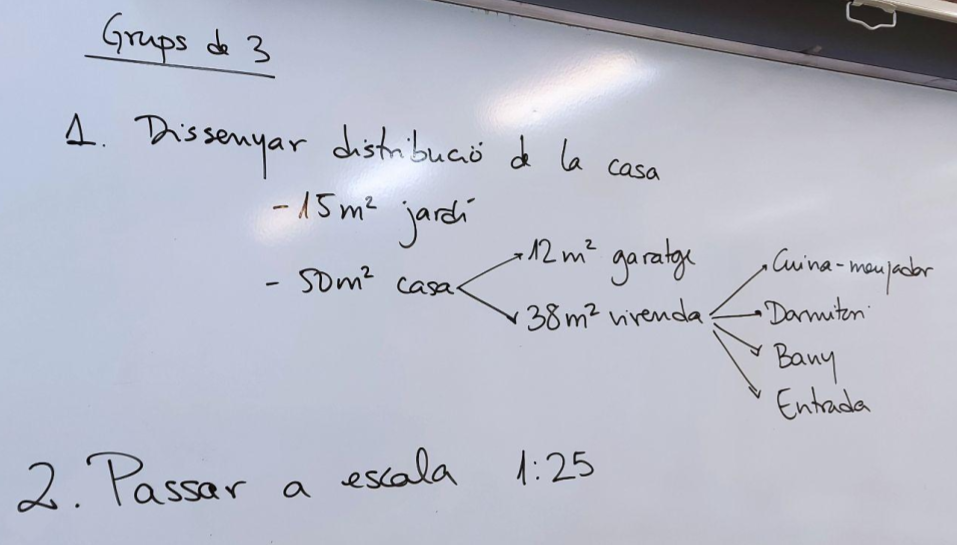 Grups de 3
1. Dissenyar distribució de la casa
- 15m² jardí
- 50m² casa
12m² garatge
38m² vivenda
Cuina-menjador
Dormitori
Bany
Entrada
2. Passar a escala 1:25